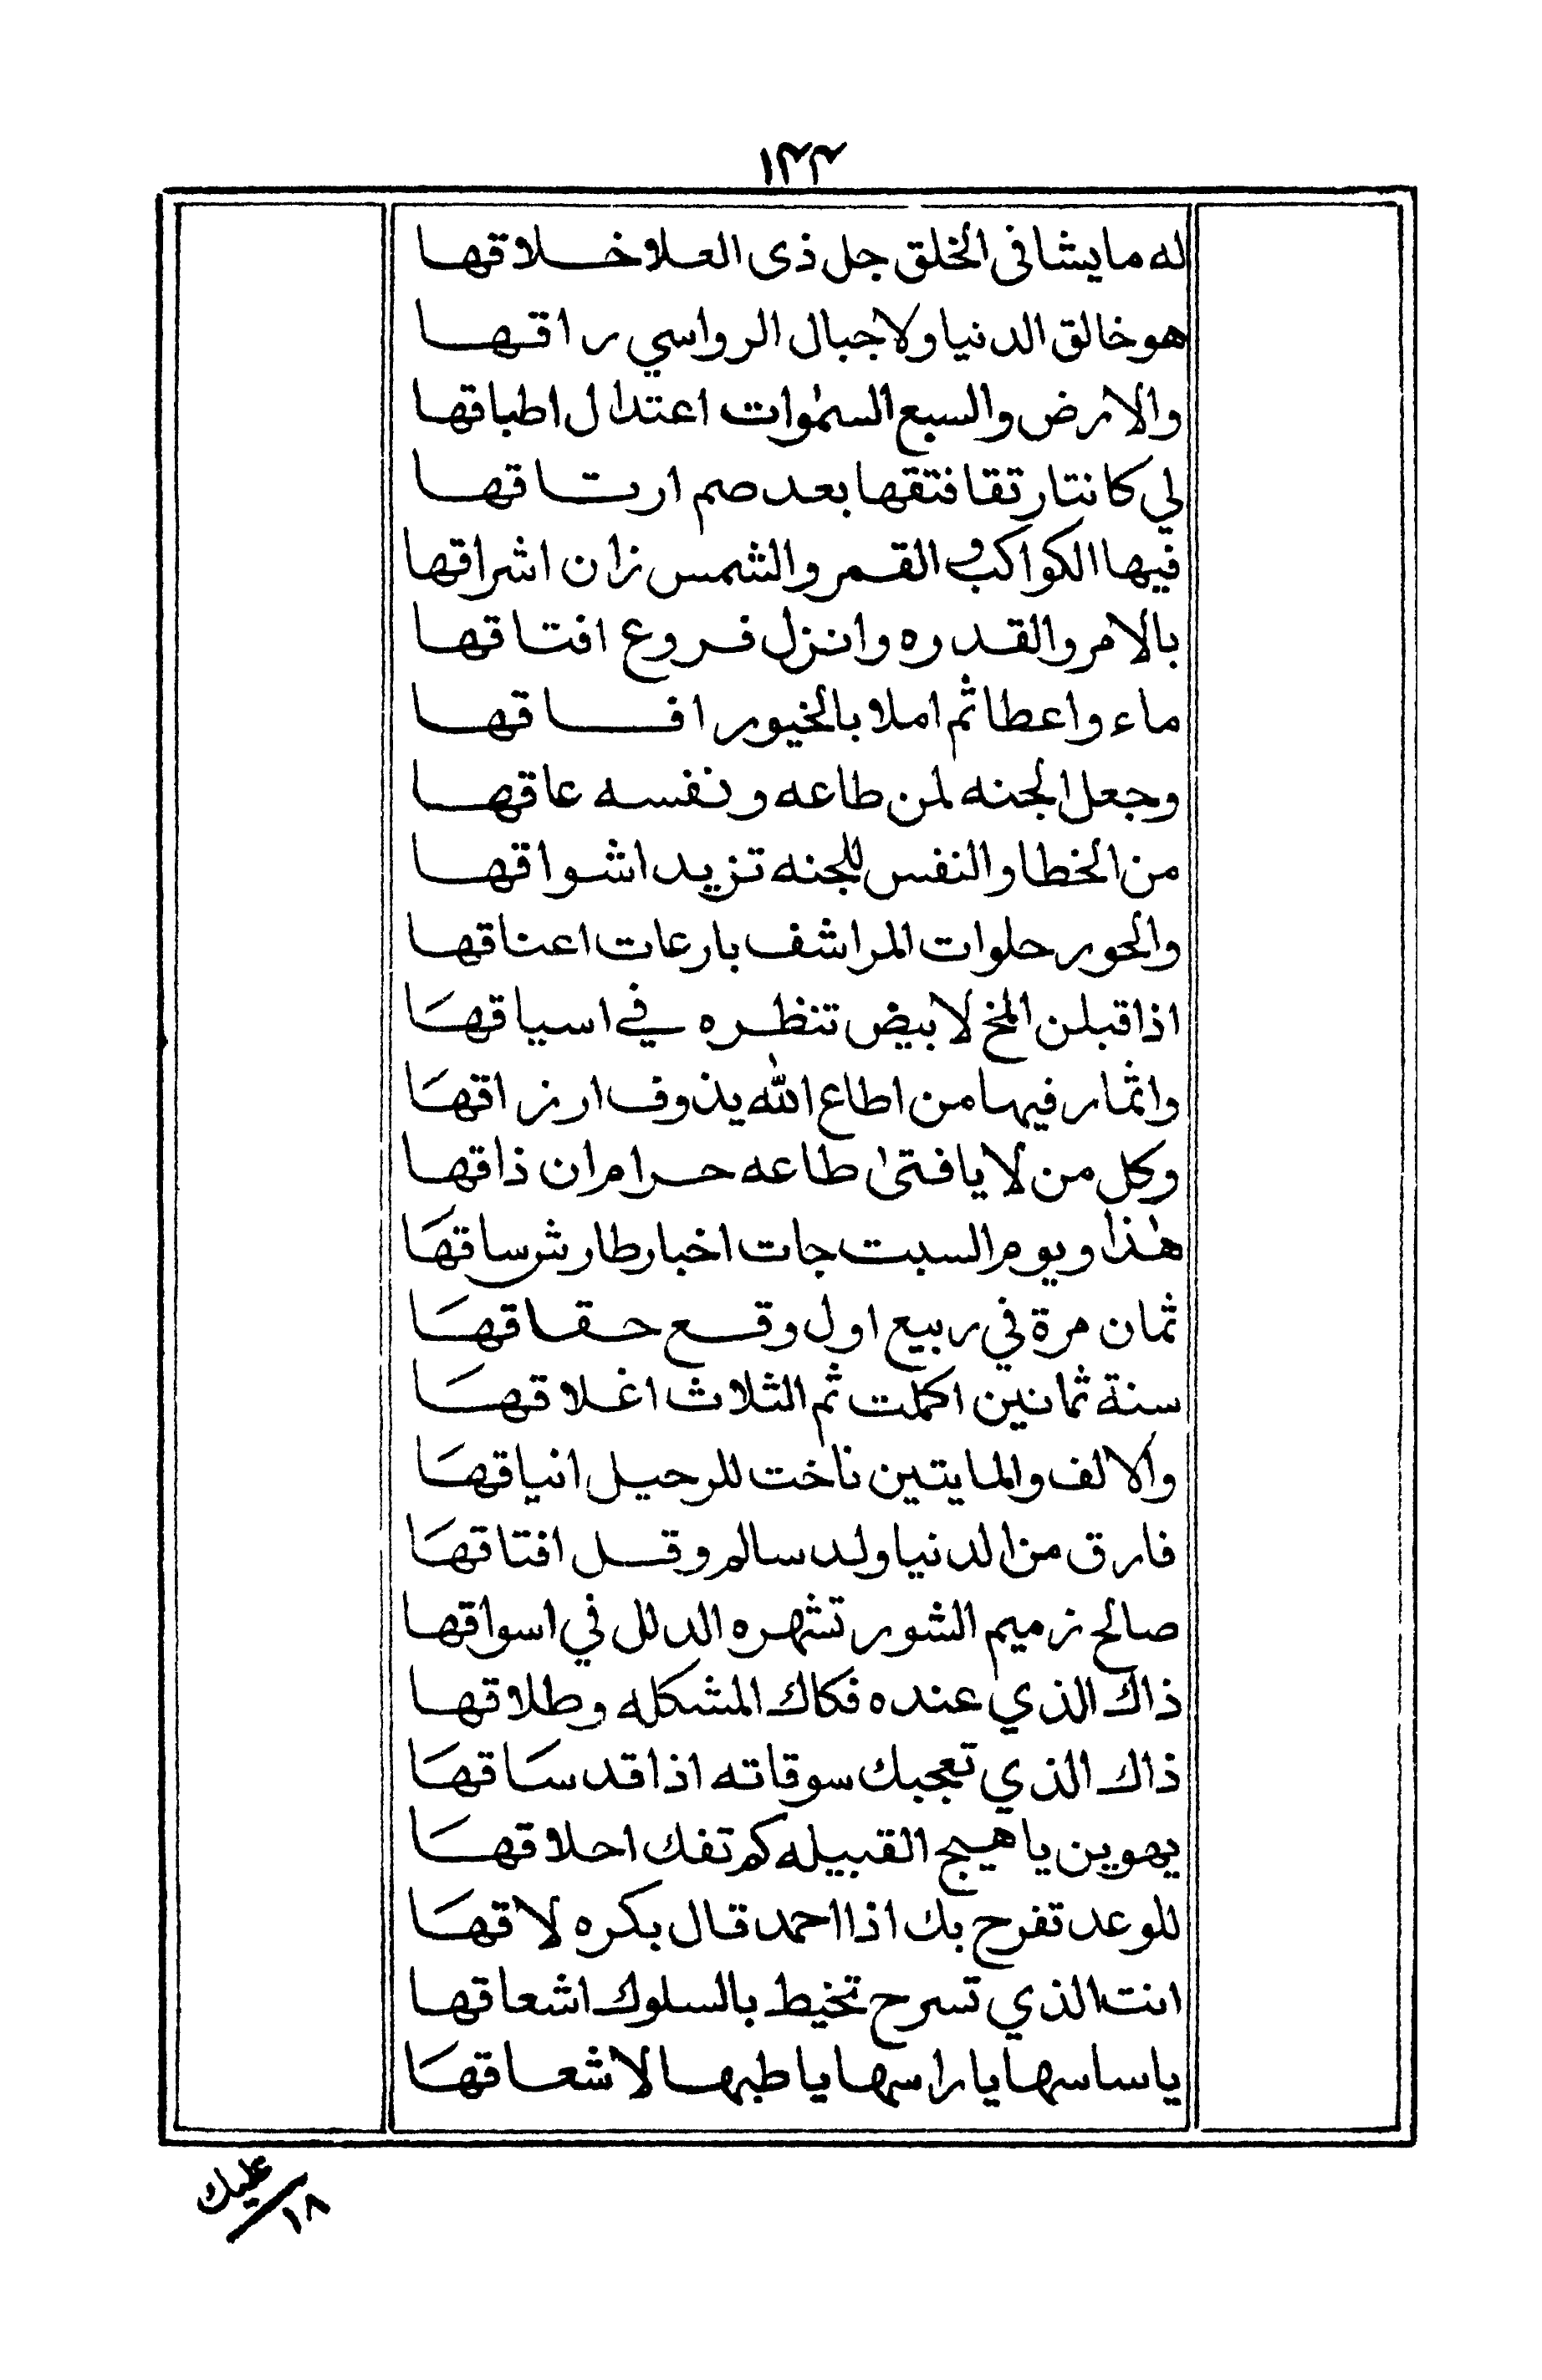 ١٣٣
له ما يشا في الخلق جل ذى العلا خلاقها
هو خالق الدنيا ولاجبال الرواسي راقها
والارض والسبع السمٰوات اعتدال اطباقها
لي كانتا رتقا فتقها بعد صم ارتاقها
فيها الكواكب والقمر والشمس زان اشراقها
بالامر والقدره وانزل فروع افتاقها
ماء واعطا ثم املا بالخيور افاقها
وجعل الجنه لمن طاعه ونفسه عاقها
من الخطا والنفس للجنه تزيد اشواقها
والحور حلوات المراشف بارعات اعناقها
اذا قبلن المخ لابيض تنظره في اسياقهَا
واثمار فيها من اطاع الله يذوف ارزاقهَا
وكل من لا يا فتىٰ طاعه حرام ان ذاقها
هٰذا ويوم السبت جات اخبار طارش ساقهَا
ثمان مرة في ربيع اول وقع حقاقهَا
سنة ثمانين اكملت ثم الثلاث اغلاقهَا
والالف والمايتين ناخت للرحيل انياقهَا
فارق من الدنيا ولد سالم وقل افتاقهَا
صالح زميم الشور تشهره الدلل في اسواقها
ذاك الذي عنده فكاك المشكله وطلاقها
ذاك الذي تعجبك سوقاته اذا قد سَاقهَا
يهوين يا هيج القبيله كم تفك احلاقهَا
للوعد تفرح بك اذا احمد قال بكره لاقهَا
انت الذي تسرح تخيط بالسلوك اشعاقها
يا ساسها يا راسها يا طبها لاشعاقهَا
عليك
١٨